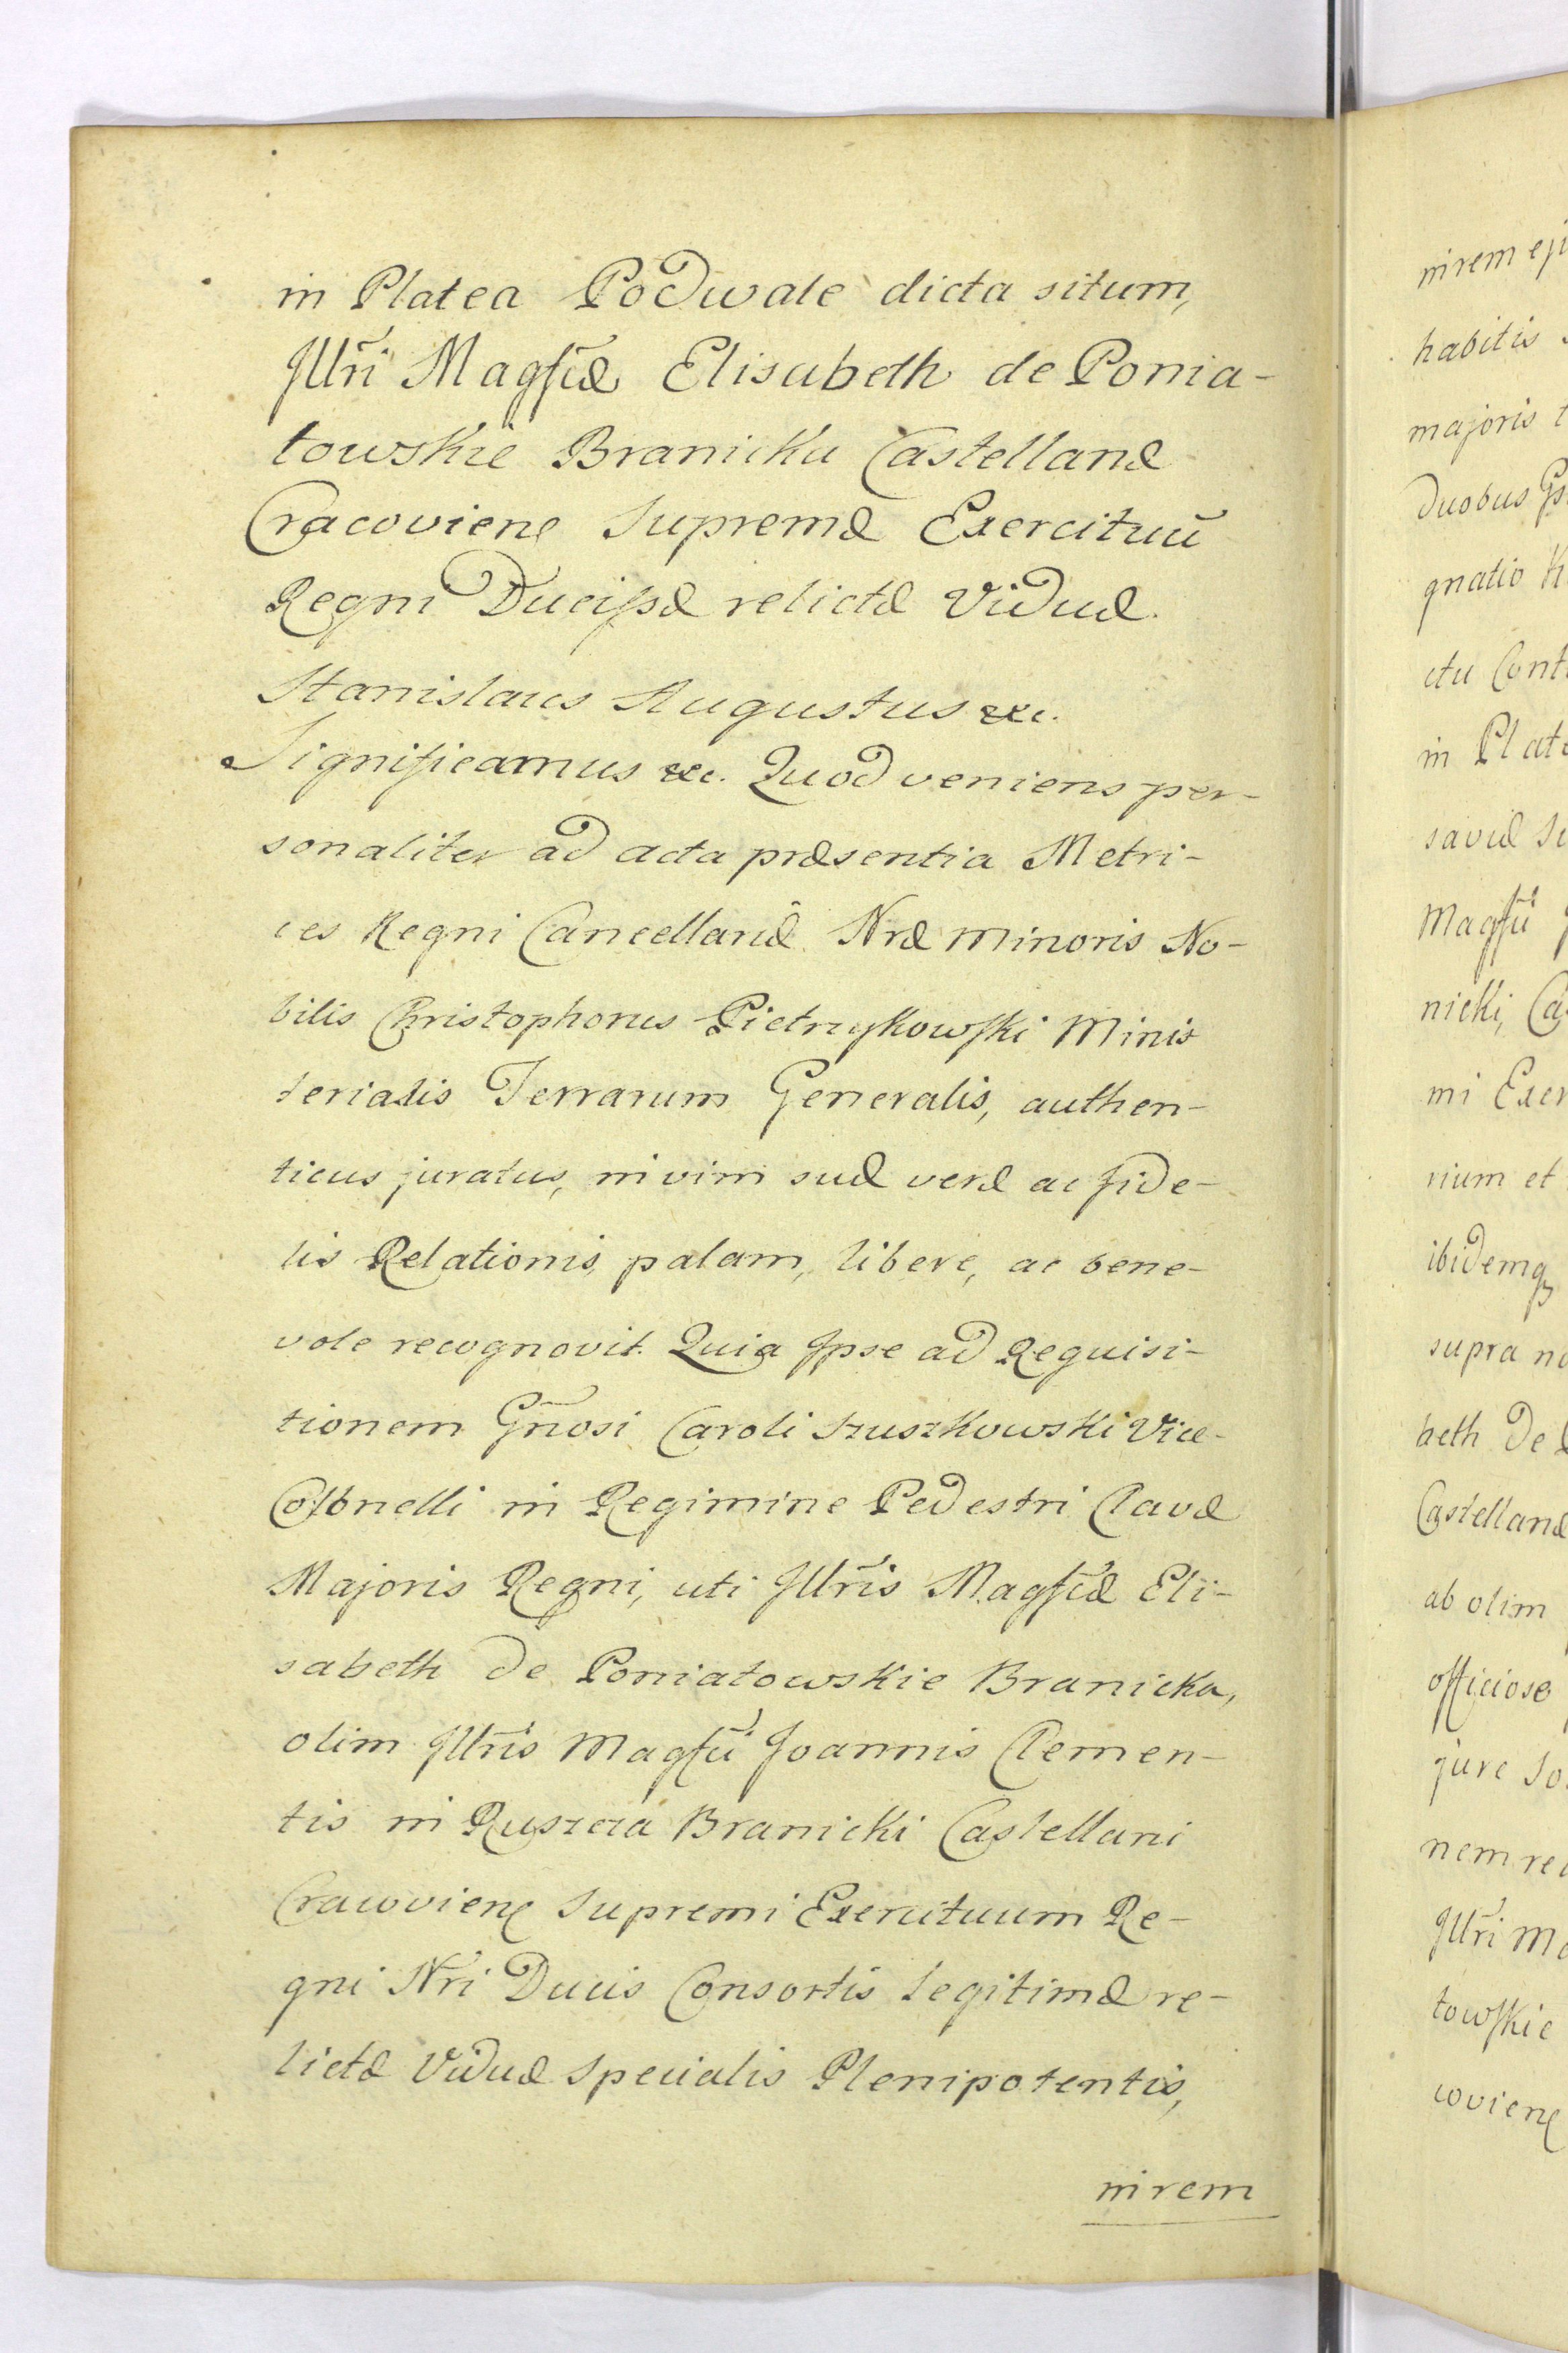 in Platea Podwale dicta situm,
Jllri Magfcæ Elisabeth de Ponia-
towskie Branicka Castellanæ
Cracovien Supremæ Exercituū
Regni Ducissæ relictæ Viduæ.
Stanislaus Augustus &c.
Significamus &c. Quod veniens per-
sonaliter ad acta præsentia Metri-
ces Regni Cancellariæ Nræ Minoris No-
bilis Christophorus Pietrzykowski Minis
terialis Terrarum Generalis, authen-
ticus juratus, in vim suæ veræ ac fide-
lis Relationis, palam, libere, ac bene-
vole recognovit. Quia Jpse ad Requisi-
tionem Gñosi Caroli Szuszkowski Vice-
Colonelli in Regimine Pedestri Clavæ
Majoris Regni, uti Jllris Magfcæ Eli-
sabeth de Poniatowskie Branicka,
olim Jllris Magfci Joannis Clemen-
tis in Ruszcza Branicki Castellani
Cracovien Supremi Exercituum Re-
gni Nri Ducis Consortis legitimæ re-
lictæ Viduæ specialis Plenipotentis,
in rem
in rem
habitis
majoris
duobus
gnatio
ctu
in
saviæ
Magfci
nicki,
mi
rium et
ibidemq
supra
beth de
Castellanæ
ab olim
officiose
jure
nem
Jllri
towskie
covien